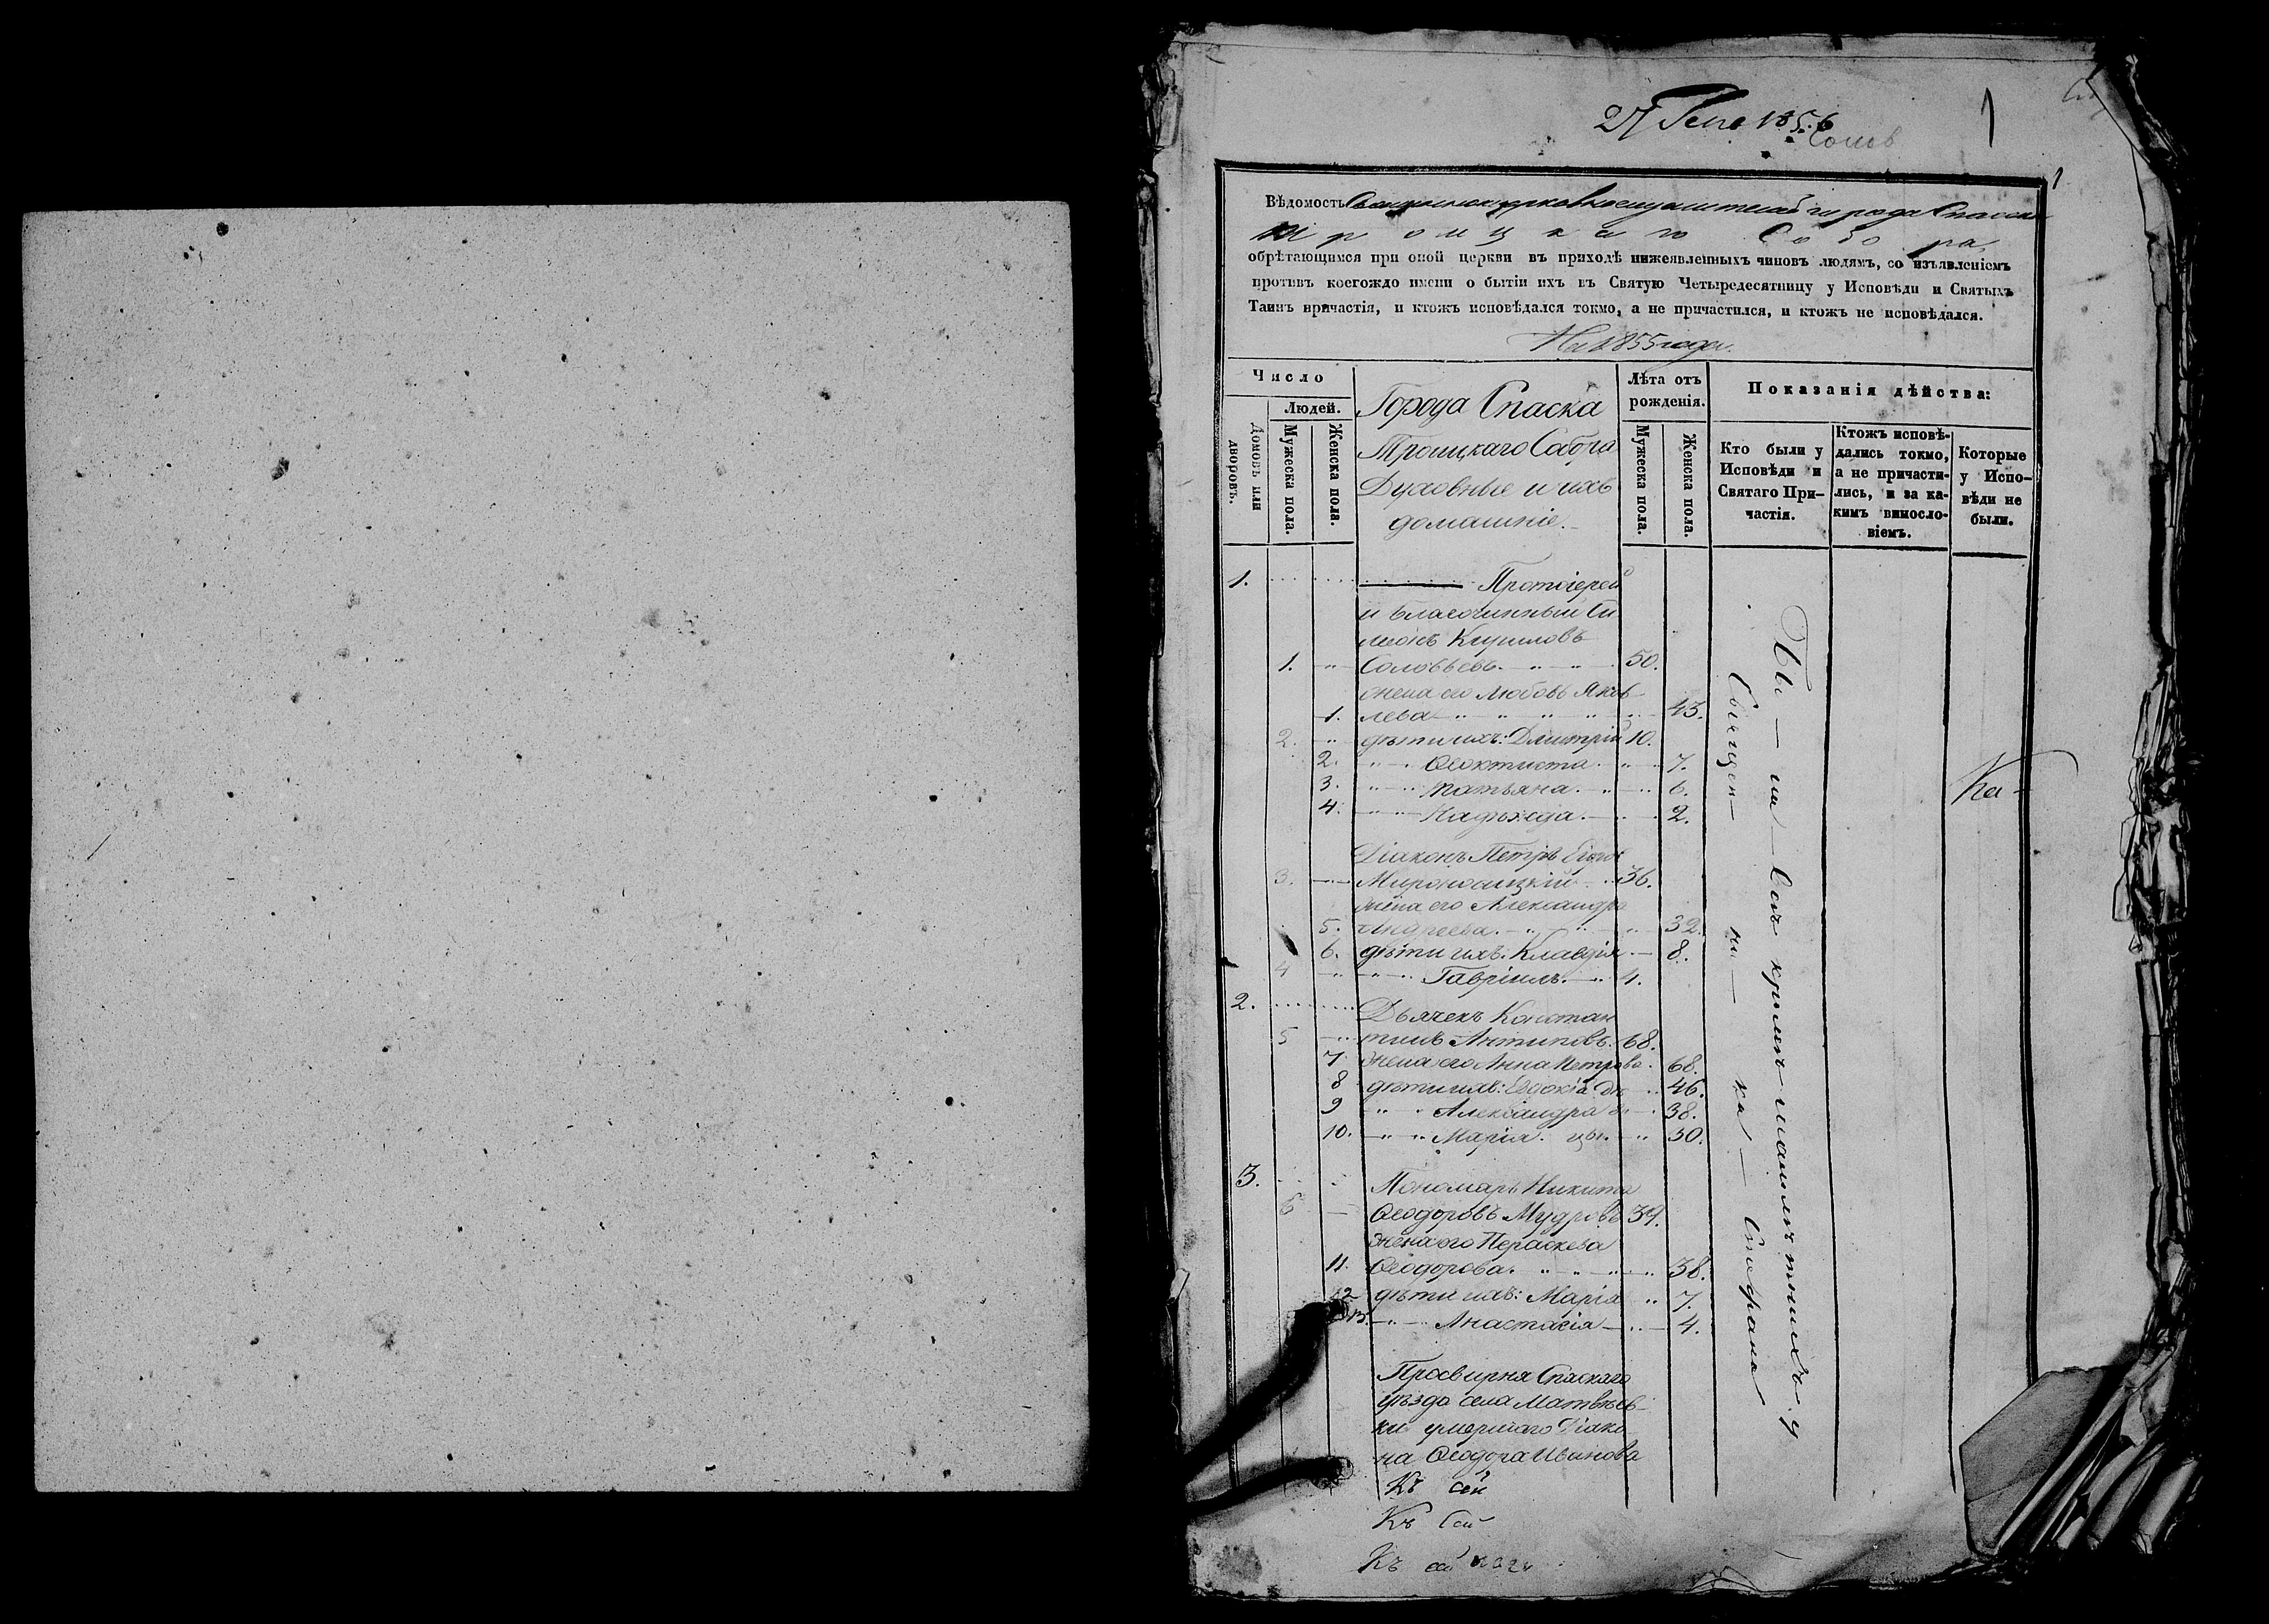 27 Генв 1856
1
1
Вѣдомость Священноцерковнослужителей города Спасска
Троицкаго Собора
обрѣтающимся при оной церкви въ приходѣ нижеявленныхъ чиновъ людямъ, со изъявленіемъ
противъ коегождо имени о бытіи ихъ въ Святую Четыредесятницу у Исповѣди и Святыхъ
Таинъ причастія, и ктожъ исповѣдался токмо, а не причастился, и ктожъ не исповѣдался.
На 1855 годъ.
Число
Людей.
Домовъ или дворовъ.
Мужеска пола.
Женска пола.
Города Спаска
Троицкаго Собора
Духовные и ихъ
домашніе.
Лѣта отъ рожденія.
Мужеска пола.
Женска пола.
Показанія дѣйства:
Кто были у Исповѣди и Святаго При-частія.
Ктожъ исповѣ-дались токмо, а не причасти-лись, и за ка-кимъ винослo-віемъ.
Которые у Испо-вѣди не были.
1. Протоіерей
и благочинный Си
меонъ Кириловъ
1. Соловьевъ. 50.
жена его Любовь Яков-
1. лева 43.
2. дѣти ихъ: Димитрій 10.
2. Ѳеоктиста. 7.
3. Татьяна. 6.
4. Надежда. 2.
Діаконъ Петръ
3. Мироносицкій 36.
жена его Александра
5. Андреева. 32.
6. дѣти ихъ: Клавдія 8.
4 Гавріилъ. 4.
2. Дьячекъ Констан
5 тинъ Антиповъ. 68.
7. жена его Анна Петрова. 68.
8 дѣти ихъ: Евдокія 46.
9 Александра 38.
10. Марія. 30.
3. Пономарь Никита
6 Ѳеодоровъ Мудровъ 39.
жена его Параскева
11. Ѳеодорова. 38.
12 дѣти ихъ: Марія 7.
13. Анастасія 4.
Просвирня Спаскаго
уѣзда села Матвѣев-
ки умершаго Діако
на Ѳеодора Иванова
Къ сей
Къ сей
Къ сей